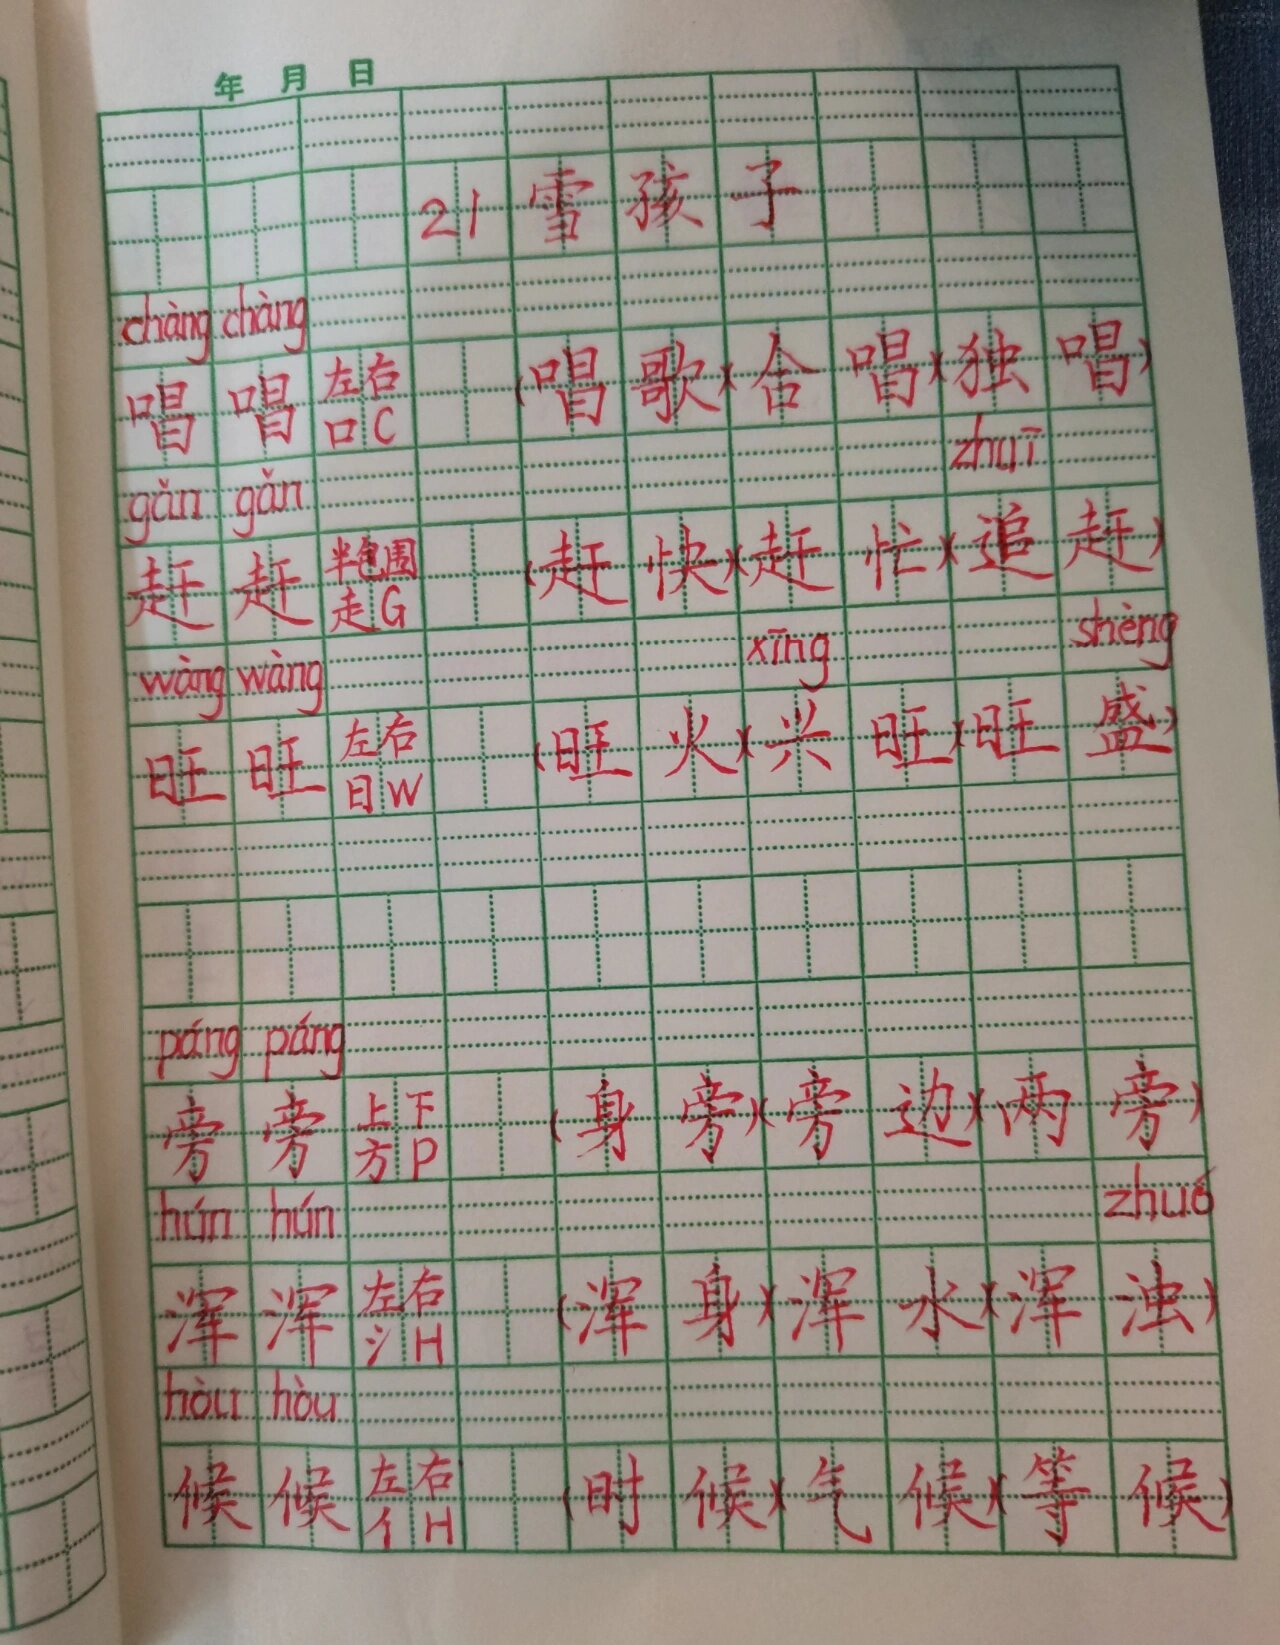 年 月 日
21 雪孩子
chàng chàng
唱 唱 左右 (唱歌)(合唱)(独唱)
口 C
gǎn gǎn zhuī
赶 赶 半包围 (赶快)(赶忙)(追赶)
走 G
wàng wàng xīng shèng
旺 旺 左右 (旺火)(兴旺)(旺盛)
日 W
páng páng
旁 旁 上下 (身旁)(旁边)(两旁)
方 P
hún hún zhuó
浑 浑 左右 (浑身)(浑水)(浑浊)
氵 H
hòu hòu
候 候 左右 (时候)(气候)(等候)
亻 H